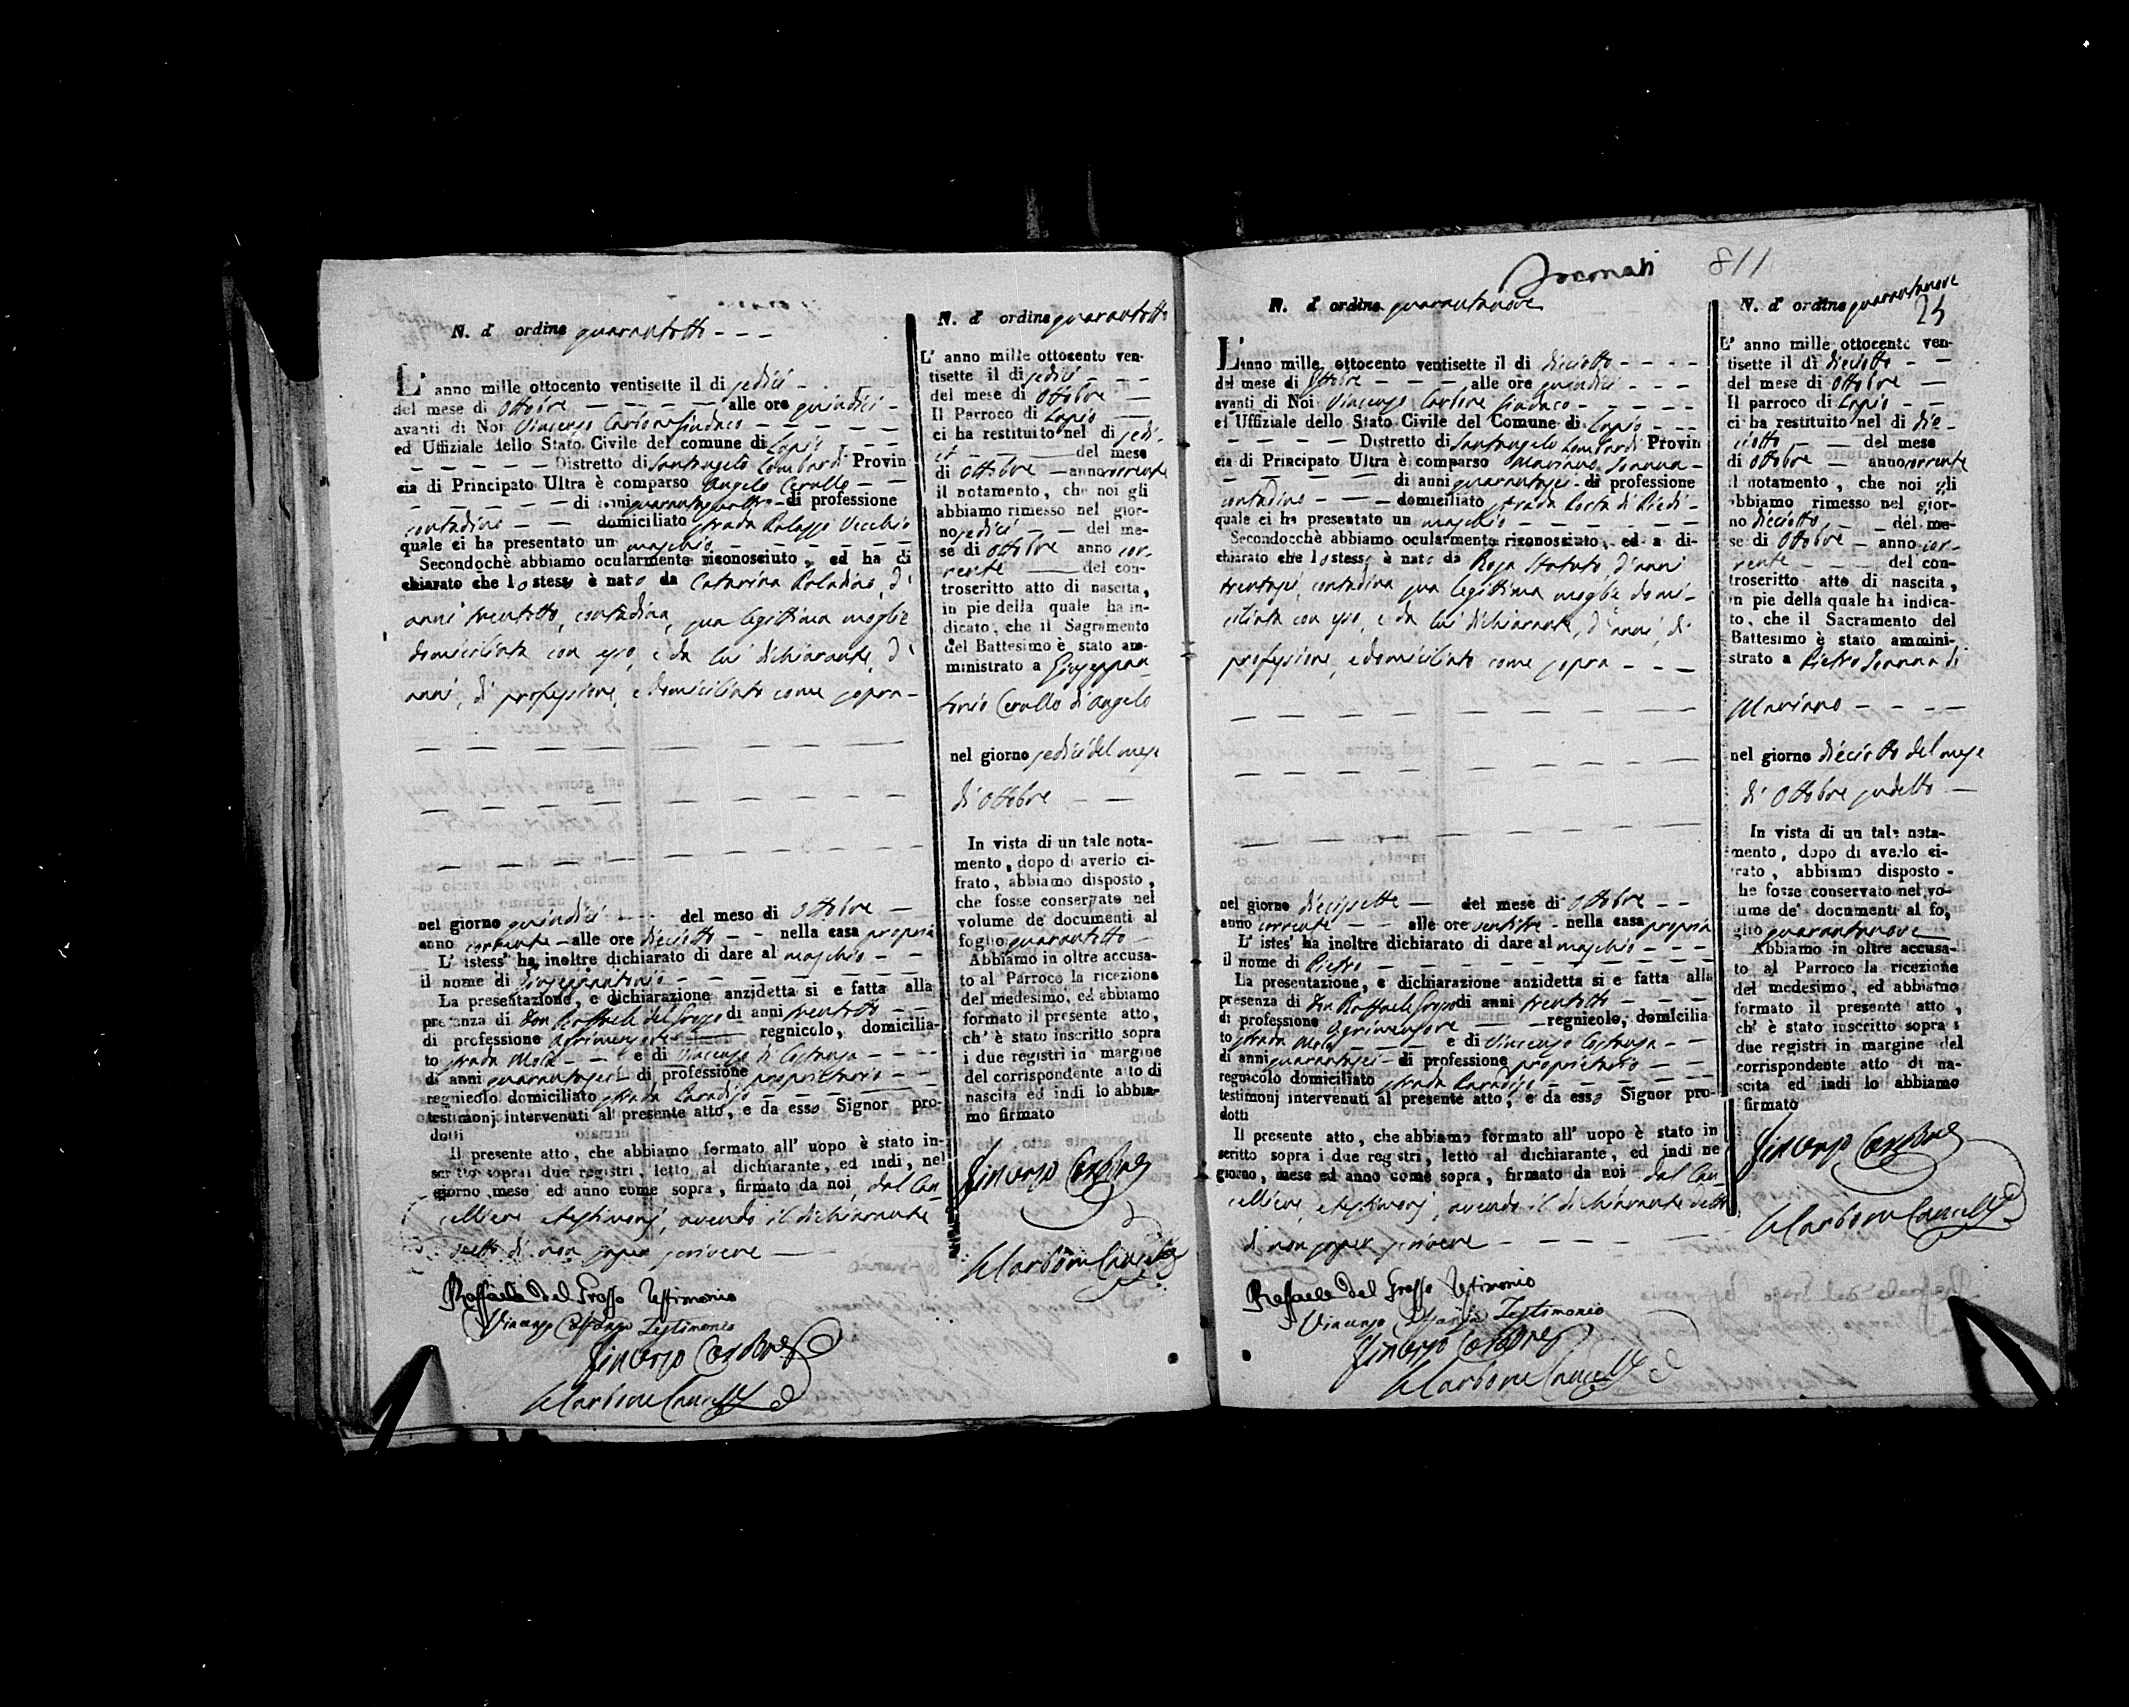 N. d' ordine quarantotto
L' anno mille ottocento ventisette il di sedici
del mese di Ottobre alle ore quindici
avanti di Noi Vincenzo Carbone Sindaco
ed Uffiziale dello Stato Civile del comune di Lapio
Distretto di Santangelo Lombardi Provin
cia di Principato Ultra è comparso Angelo Cerullo
di anni quarantaquattro di professione
contadino domiciliato strada Palazzo Vecchio
quale ci ha presentato un maschio
Secondochè abbiamo ocularmente riconosciuto, ed ha di
chiarato che lo stesso è nato da Catarina Poladino, d'
anni trentotto, contadina, sua legittima moglie
domiciliata con esso, e da lui dichiarante, d'
anni, di professione, e domiciliato come sopra
nel giorno quindici del mese di Ottobre
anno corrente alle ore dieciotto nella casa propria
L' istess' ha inoltre dichiarato di dare al maschio
il nome di Giuseppantonio
La presentazione, e dichiarazione anzidetta si e fatta alla
presenza di Don Raffaele del Grosso di anni trentotto
di professione Agrimensore regnicolo, domicilia-
to strada Mola e di Vincenzo di Costanzo
di anni quarantasei di professione proprietario
regnicolo domiciliato strada Paradiso
testimonj intervenuti al presente atto, e da esso Signor pro-
dotti
Il presente atto, che abbiamo formato all' uopo è stato in-
scritto sopra i due registri, letto al dichiarante, ed indi, nel
giorno mese ed anno come sopra, firmato da noi, dal Can-
celliere e testimonj, avendo il dichiarante
detto di non saper scrivere
Raffaele del Grosso Testimonio
Vincenzo Costanzo Testimonio
Vincenzo Carbone
Carbone Cancell
N. d' ordine quarantotto
L' anno mille ottocento ven-
tisette il di sedici
del mese di Ottobre
Il Parroco di Lapio
ci ha restituito nel di sedi-
ci del mese
di Ottobre anno corrente
il notamento, che noi gli
abbiamo rimesso nel gior-
no sedici del me-
se di Ottobre anno cor-
rente del con-
troscritto atto di nascita,
in pie della quale ha in-
dicato, che il Sagramento
del Battesimo è stato am-
ministrato a Giuseppan-
tonio Cerullo di Angelo
nel giorno sedici del mese
di Ottobre
In vista di un tale nota-
mento, dopo di averlo ci-
frato, abbiamo disposto,
che fosse conservato nel
volume de' documenti al
foglio quarantotto
Abbiamo in oltre accusa-
to al Parroco la ricezione
del medesimo, ed abbiamo
formato il presente atto,
ch' è stato inscritto sopra
i due registri in margine
del corrispondente atto di
nascita ed indi lo abbia-
mo firmato
Vincenzo Carbone
Carbone Cancell
811
N. d' ordine quarantanove
L'anno mille ottocento ventisette il di dieciotto
del mese di Ottobre alle ore quindici
avanti di Noi Vincenzo Carbone Sindaco
el Uffiziale dello Stato Civile del Comune di Lapio
Distretto di Santangelo Lombardi Provin
cia di Principato Ultra è comparso Mariano Ioanna
di anni quarantasei di professione
contadino domiciliato strada Costa di Piedi
quale ci ha presentato un maschio
Secondocchè abbiamo ocularmente riconosciuto, ed a di-
chiarato che lo stesso è nato da Rosa Statuto, d'anni
trentasei, contadina sua legittima moglie domi-
ciliata con esso, e da lui dichiarante, d'anni, di
professione, e domiciliato come sopra
nel giorno diecisette del mese di Ottobre
anno corrente alle ore ventitre nella casa propria
L' istes' ha inoltre dichiarato di dare al maschio
il nome di Pietro
La presentazione, e dichiarazione anzidetta si e fatta alla
presenza di Don Raffaele Grosso di anni trentotto
di professione Agrimensore regnicolo, domicilia
to strada Mola e di Vincenzo Costanzo
di anni quarantasei di professione proprietario
regnicolo domiciliato strada Paradiso
testimonj intervenuti al presente atto, e da esso Signor pro-
dotti
Il presente atto, che abbiamo formato all' uopo è stato in
scritto sopra i due registri, letto al dichiarante, ed indi ne
giorno, mese ed anno come sopra, firmato da noi dal Can
celliere, e testimonj, avendo il dichiarante detto
di non saper scrivere
Raffaele del Grosso Testimonio
Vincenzo Costanzo Testimonio
Vincenzo Carbone
Carbone Cancell
N. d' ordine quarantanove
25
L' anno mille ottocento ven-
tisette il dì dieciotto
del mese di Ottobre
Il parroco di Lapio
ci ha restituito nel di die-
ciotto del mese
di Ottobre anno corrente
il notamento, che noi gli
abbiamo rimesso nel gior-
no dieciotto del me-
se di Ottobre anno cor-
rente del con-
troscritto atto di nascita,
in pie della quale ha indica-
to, che il Sacramento del
Battesimo è stato ammini-
strato a Pietro Ioanna di
Mariano
nel giorno dieciotto del mese
di Ottobre sudetto
In vista di un tale nota-
mento, dopo di averlo ci-
frato, abbiamo disposto
he fosse conservato nel vo-
lume de' documenti al fo,
glio quarantanove
Abbiamo in oltre accusa-
to al Parroco la ricezione
del medesimo, ed abbiamo
formato il presente atto,
ch' è stato inscritto sopra i
due registri in margine del
corrispondente atto di na-
scita ed indi lo abbiamo
firmato
Vincenzo Carbone
Carbone Cancell